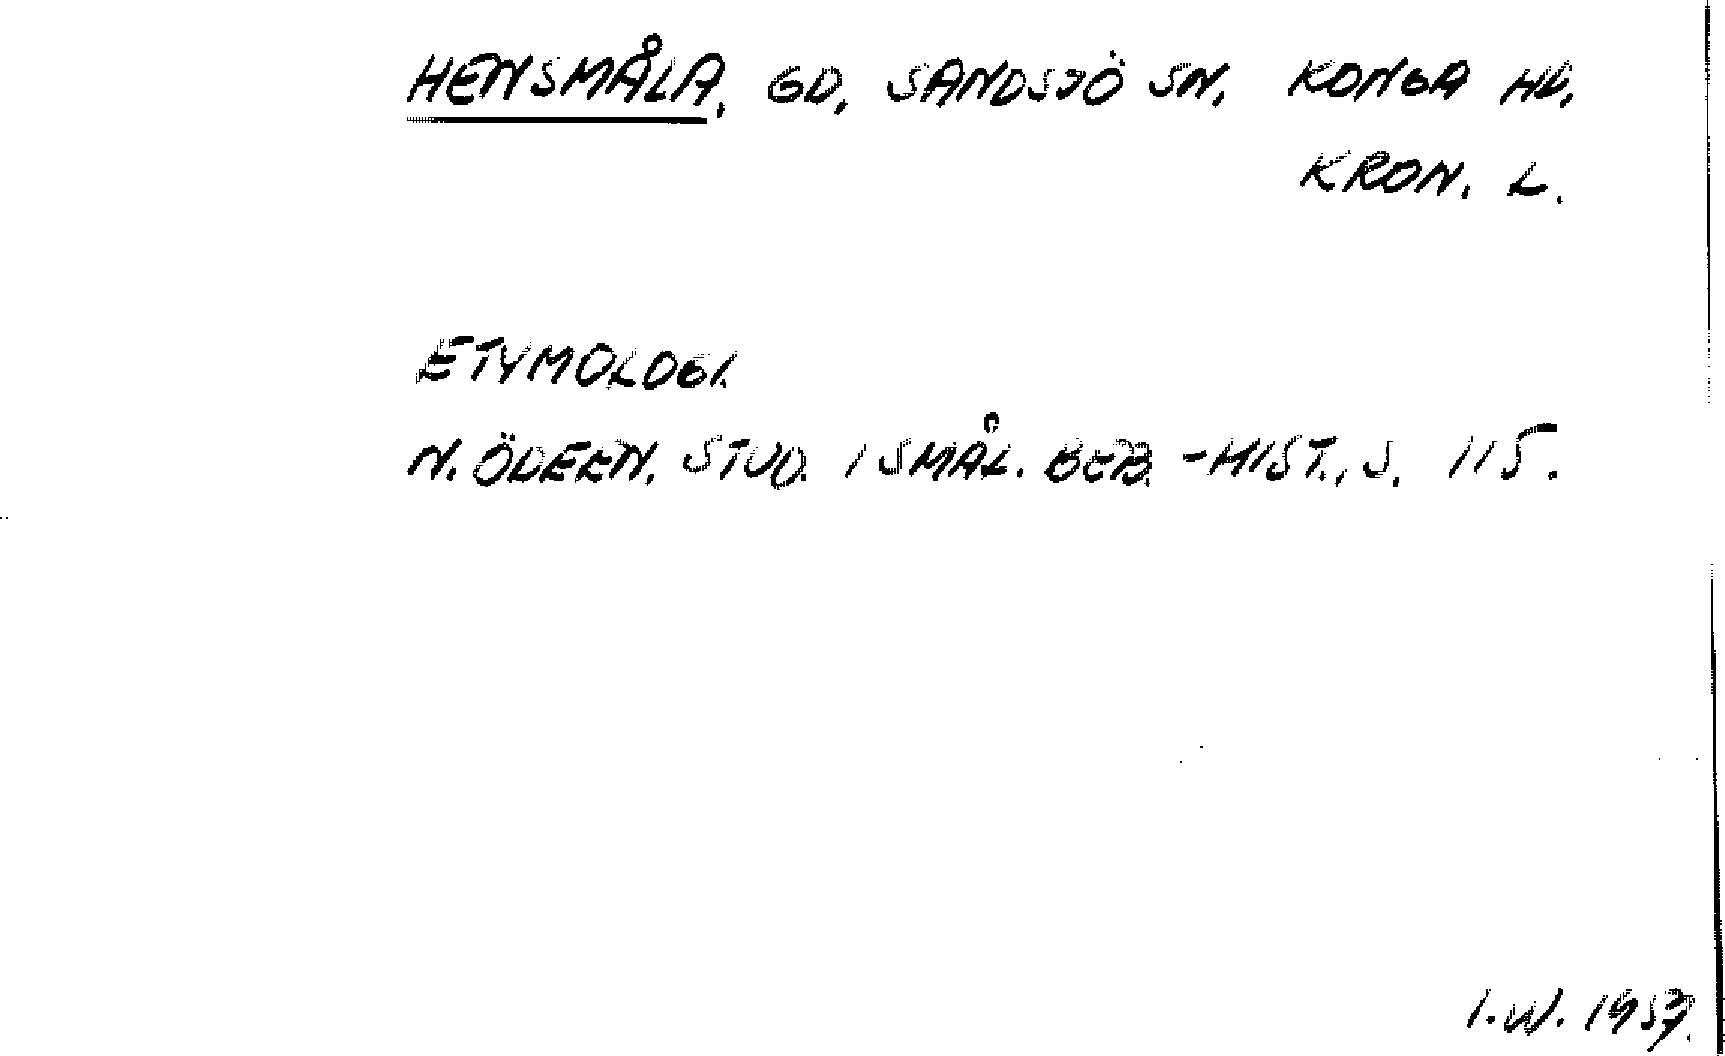 HENSMÅLA, GD, SANDSJÖ SN, KONGA HD,
KRON. L.
ETYMOLOGI.
N. ÖDEEN, STUD. I SMÅL. BEB. -HIST., S. 115.
I.W. 1957.